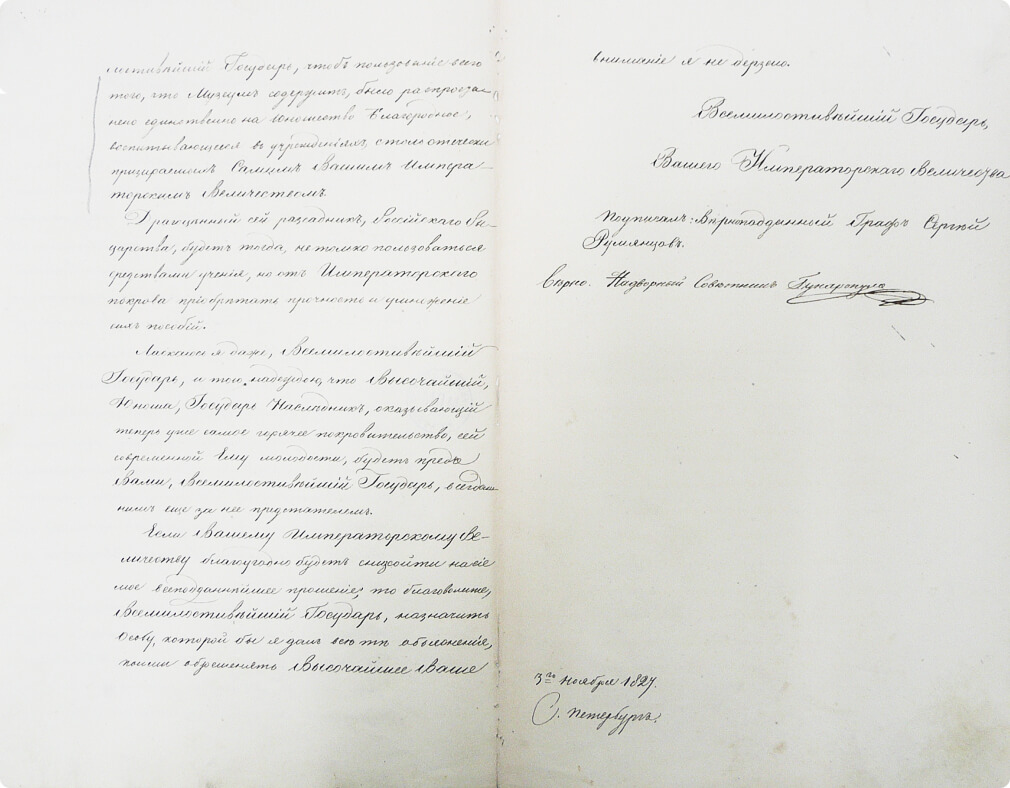 лостивѣйшій Государь, чтобъ пользованіе всего
того, что Музеумъ содержитъ, было распростра-
нено единственно на юношество благородное,
воспитывающееся въ учрежденіяхъ, столь отечески
призираемомъ Самимъ Вашимъ Импера-
торскимъ Величествомъ.
Драгоцѣнный сей разсадникъ, Россійскаго Го-
ударства, будетъ тогда, не только пользоваться
средствами ученія, но отъ Императорскаго
покрова пріобрѣтать прочность и умноженіе
сихъ пособій.
Ласкаюсь я даже, Всемилостивѣйшій
Государь, и тою надеждою, что Высочайшій
Юноша, Государь Наслѣдникъ, оказывающій
теперь уже самое горячее покровительство, сей
современной Ему молодости, будетъ предъ
Вами, Всемилостивѣйшій Государь, всегдаш
нимъ еще за нее предстателемъ.
Если Вашему Императорскому Ве-
личеству благоугодно будетъ снизойти на сіе
мое всеподданнѣйшее прошеніе, то благоволите,
Всемилостивѣйшій Государь, назначить
Особу, которой бы я далъ всѣ тѣ объясненія,
коими обременять Высочайшее Ваше
вниманіе я не дерзаю.
Всемилостивѣйшій Государь,
Вашего Императорскаго Величества
Подписалъ: Вѣрноподданный Графъ Сергій
Румянцовъ.
Вѣрно: Надворный Совѣтникъ
3го Ноября 1827.
С. Петербургъ.